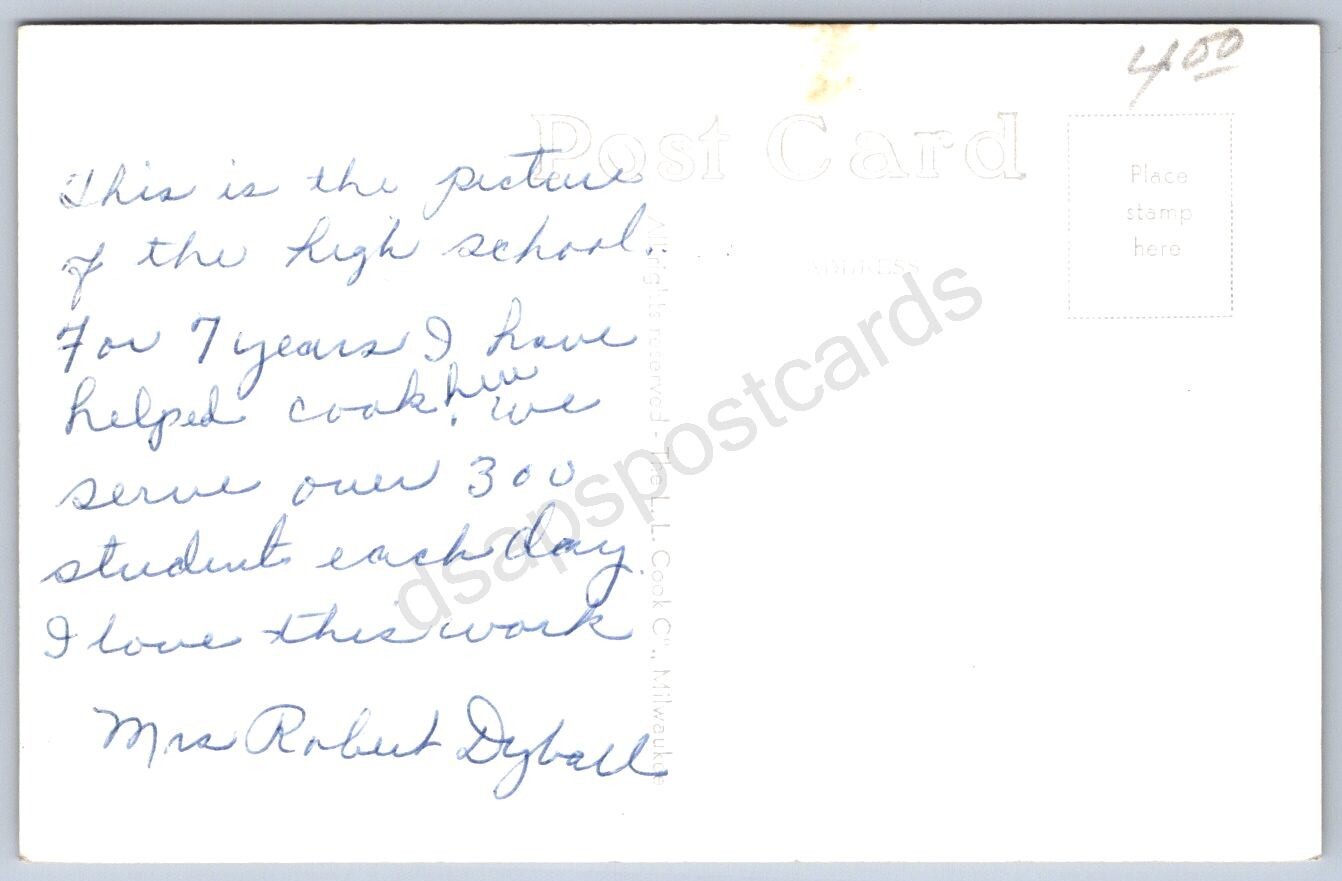 4.00
Post Card
Place
stamp
here
ADDRESS
This is the picture
of the high school.
For 7 years I have
helped cook here. we
serve over 300
students each day.
I love this work
Mrs Robert Dyball
All rights reserved - The L. L. Cook Co., Milwaukee
dsapspostcards